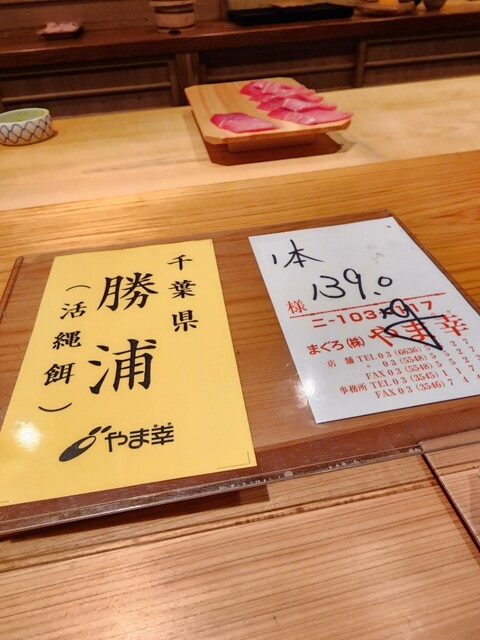 千葉県
勝浦
(活縄餌)
やま幸
1本
139.0
様
ニ-103
17
まぐろ(株)やま幸
店舗TEL03(6636)
〃 03(5548)
FAX03(5548)
事務所TEL03(3545)
FAX03(3546)